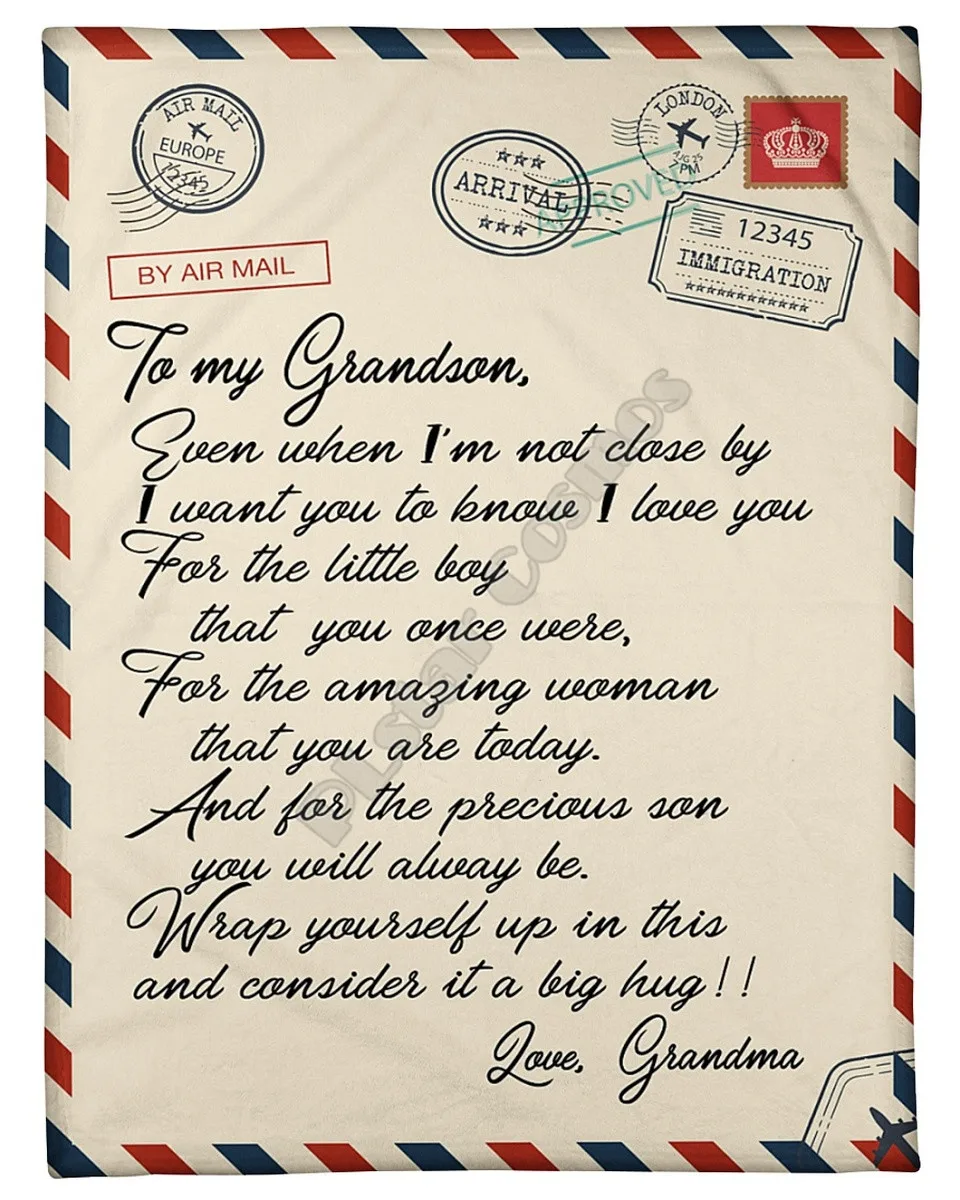 AIR MAIL
EUROPE
12345
ARRIVAL
APPROVED
LONDON
AUG 25
7PM
12345
IMMIGRATION
BY AIR MAIL
To my Grandson,
Even when I'm not close by
I want you to know I love you
For the little boy
that you once were,
For the amazing woman
that you are today.
And for the precious son
you will alway be.
Wrap yourself up in this
and consider it a big hug!!
Love, Grandma
PLstar Cosmos